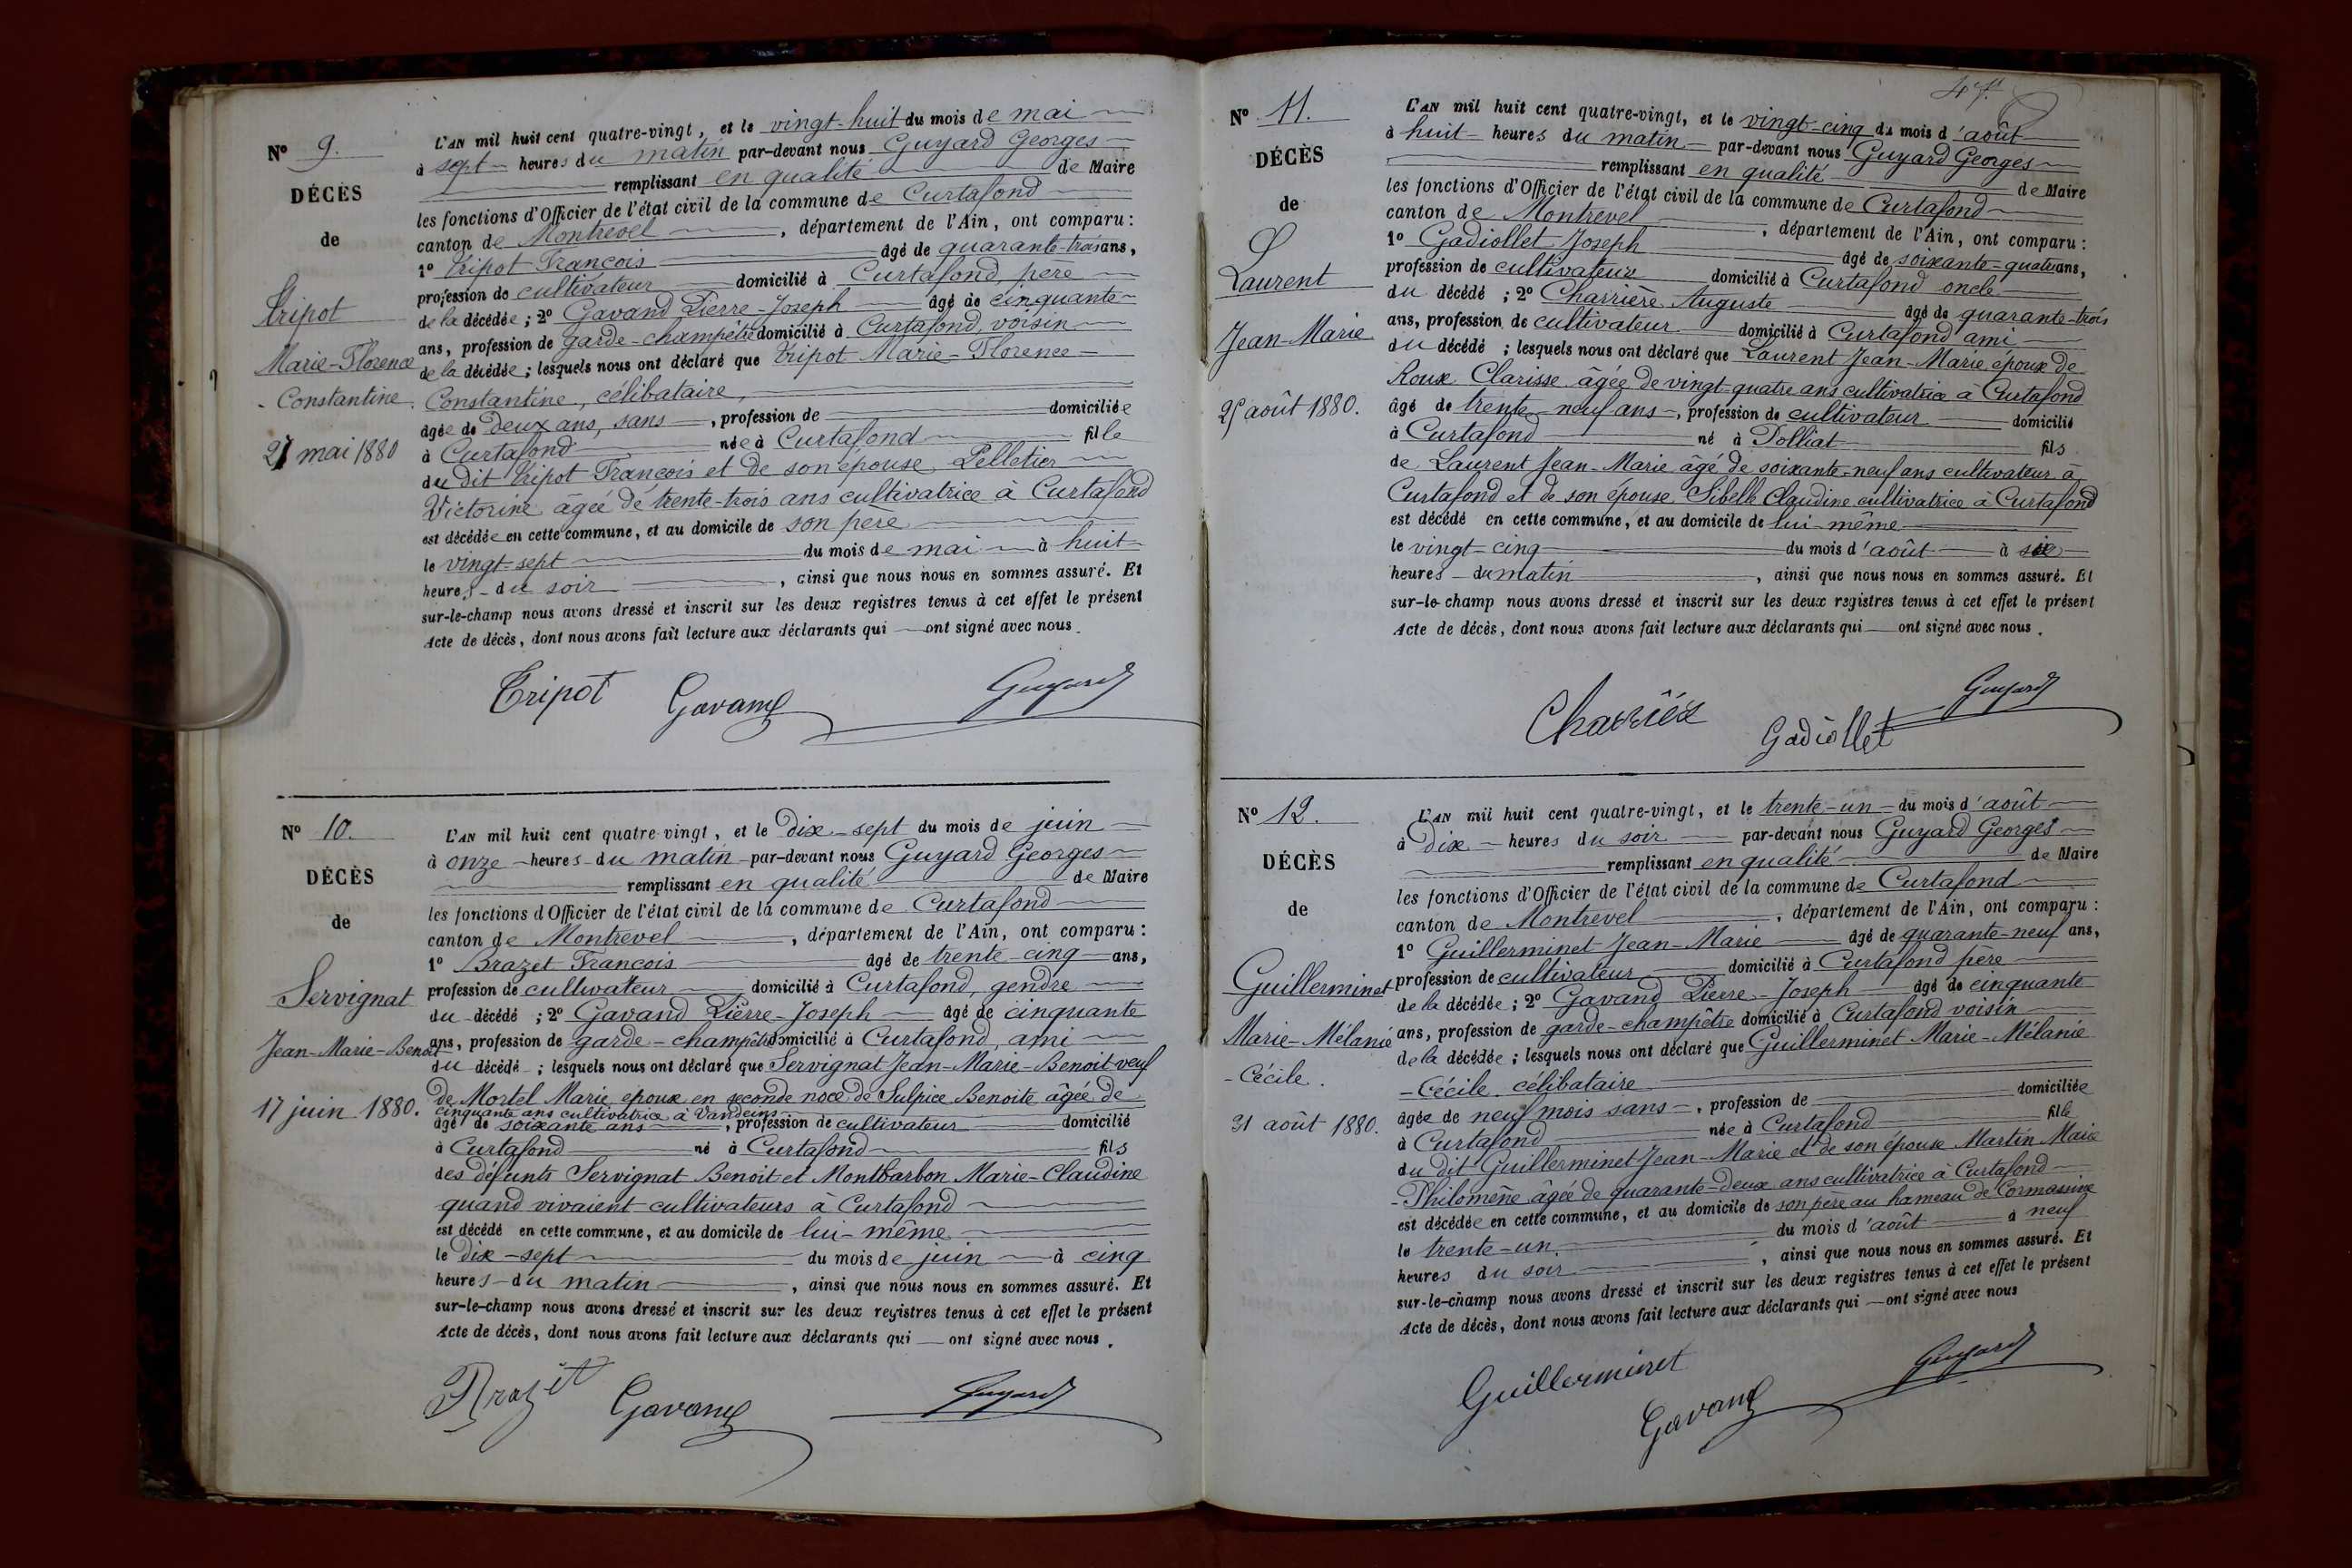 N° 9.
DÉCÈS
de
Tripot
Marie-Florence
- Constantine.
27 mai 1880
L'AN mil huit cent quatre-vingt, et le vingt-huit du mois de mai
à sept heures du matin par-devant nous Guyard Georges
remplissant en qualité de Maire
les fonctions d'Officier de l'état civil de la commune de Curtafond
canton de Montrevel, département de l'Ain, ont comparu :
1° Tripot François âgé de quarante-trois ans,
profession de cultivateur domicilié à Curtafond, père
de la décédée ; 2° Gavand Pierre-Joseph âgé de cinquante
ans, profession de garde-champêtre domicilié à Curtafond, voisin
de la décédée ; lesquels nous ont déclaré que Tripot Marie-Florence-
Constantine, célibataire,
âgée de deux ans, sans, profession de domiciliée
à Curtafond née à Curtafond fille
du dit Tripot François et de son épouse Pelletier
Victorine âgée de trente-trois ans cultivatrice à Curtafond
est décédée en cette commune, et au domicile de son père
le vingt-sept du mois de mai à huit
heures du soir, ainsi que nous nous en sommes assuré. Et
sur-le-champ nous avons dressé et inscrit sur les deux registres tenus à cet effet le présent
Acte de décès, dont nous avons fait lecture aux déclarants qui ont signé avec nous.
Tripot Gavand Guyard
N° 10.
DÉCÈS
de
Servignat
Jean-Marie-Benoit
17 juin 1880.
L'AN mil huit cent quatre-vingt, et le dix-sept du mois de juin
à onze heures du matin par-devant nous Guyard Georges
remplissant en qualité de Maire
les fonctions d'Officier de l'état civil de la commune de Curtafond
canton de Montrevel, département de l'Ain, ont comparu :
1° Brazet François âgé de trente-cinq ans,
profession de cultivateur domicilié à Curtafond, gendre
du décédé ; 2° Gavand Pierre-Joseph âgé de cinquante
ans, profession de garde-champêtre domicilié à Curtafond, ami
du décédé ; lesquels nous ont déclaré que Servignat Jean-Marie-Benoit veuf
de Mortel Marie, époux en seconde noce de Sulpice Benoite âgée de
cinquante ans cultivatrice à Vandeins
âgé de soixante ans, profession de cultivateur domicilié
à Curtafond né à Curtafond fils
des défunts Servignat Benoit et Montbarbon Marie-Claudine
quand vivaient cultivateurs à Curtafond
est décédé en cette commune, et au domicile de lui-même
le dix-sept du mois de juin à cinq
heures du matin, ainsi que nous nous en sommes assuré. Et
sur-le-champ nous avons dressé et inscrit sur les deux registres tenus à cet effet le présent
Acte de décès, dont nous avons fait lecture aux déclarants qui ont signé avec nous.
Brazet Gavand Guyard
N° 11.
DÉCÈS
de
Laurent
Jean-Marie
25 août 1880.
L'AN mil huit cent quatre-vingt, et le vingt-cinq du mois d'août
à huit heures du matin par-devant nous Guyard Georges
remplissant en qualité de Maire
les fonctions d'Officier de l'état civil de la commune de Curtafond
canton de Montrevel, département de l'Ain, ont comparu :
1° Gadiollet Joseph âgé de soixante-quatre ans,
profession de cultivateur domicilié à Curtafond oncle
du décédé ; 2° Charrière Auguste âgé de quarante-trois
ans, profession de cultivateur domicilié à Curtafond ami
du décédé ; lesquels nous ont déclaré que Laurent Jean-Marie époux de
Roux Clarisse âgée de vingt-quatre ans cultivatrice à Curtafond
âgé de trente-neuf ans, profession de cultivateur domicilié
à Curtafond né à Polliat fils
de Laurent Jean-Marie âgé de soixante-neuf ans cultivateur à
Curtafond et de son épouse Sibelle Claudine cultivatrice à Curtafond
est décédé en cette commune, et au domicile de lui-même
le vingt-cinq du mois d'août à six
heures du matin, ainsi que nous nous en sommes assuré. Et
sur-le-champ nous avons dressé et inscrit sur les deux registres tenus à cet effet le présent
Acte de décès, dont nous avons fait lecture aux déclarants qui ont signé avec nous.
Gadiollet Guyard
N° 12.
DÉCÈS
de
Guillerminet
Marie-Mélanie
- Cécile.
31 août 1880.
L'AN mil huit cent quatre-vingt, et le trente-un du mois d'août
à dix heures du soir par-devant nous Guyard Georges
remplissant en qualité de Maire
les fonctions d'Officier de l'état civil de la commune de Curtafond
canton de Montrevel, département de l'Ain, ont comparu :
1° Guillerminet Jean-Marie âgé de quarante-neuf ans,
profession de cultivateur domicilié à Curtafond père
de la décédée ; 2° Gavand Pierre-Joseph âgé de cinquante
ans, profession de garde-champêtre domicilié à Curtafond voisin
de la décédée ; lesquels nous ont déclaré que Guillerminet Marie-Mélanie
-Cécile, célibataire
âgée de neuf mois sans, profession de domiciliée
à Curtafond née à Curtafond fille
du dit Guillerminet Jean-Marie et de son épouse Martin Marie
-Philomène âgée de quarante-deux ans cultivatrice à Curtafond
est décédée en cette commune, et au domicile de son père au hameau de Cormassine
le trente-un. du mois d'août à neuf
heures du soir, ainsi que nous nous en sommes assuré. Et
sur-le-champ nous avons dressé et inscrit sur les deux registres tenus à cet effet le présent
Acte de décès, dont nous avons fait lecture aux déclarants qui ont signé avec nous
Guillerminet Gavand Guyard